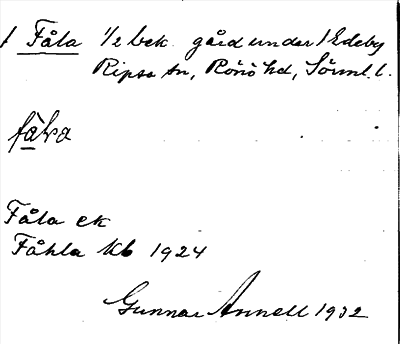 1 Fåla 1/2 bek. gård under 1 Edeby
Ripsa sn, Rönö hd, Sörml. l.
Fåla ek
Fåhla kb 1924
Gunnar Annell 1932